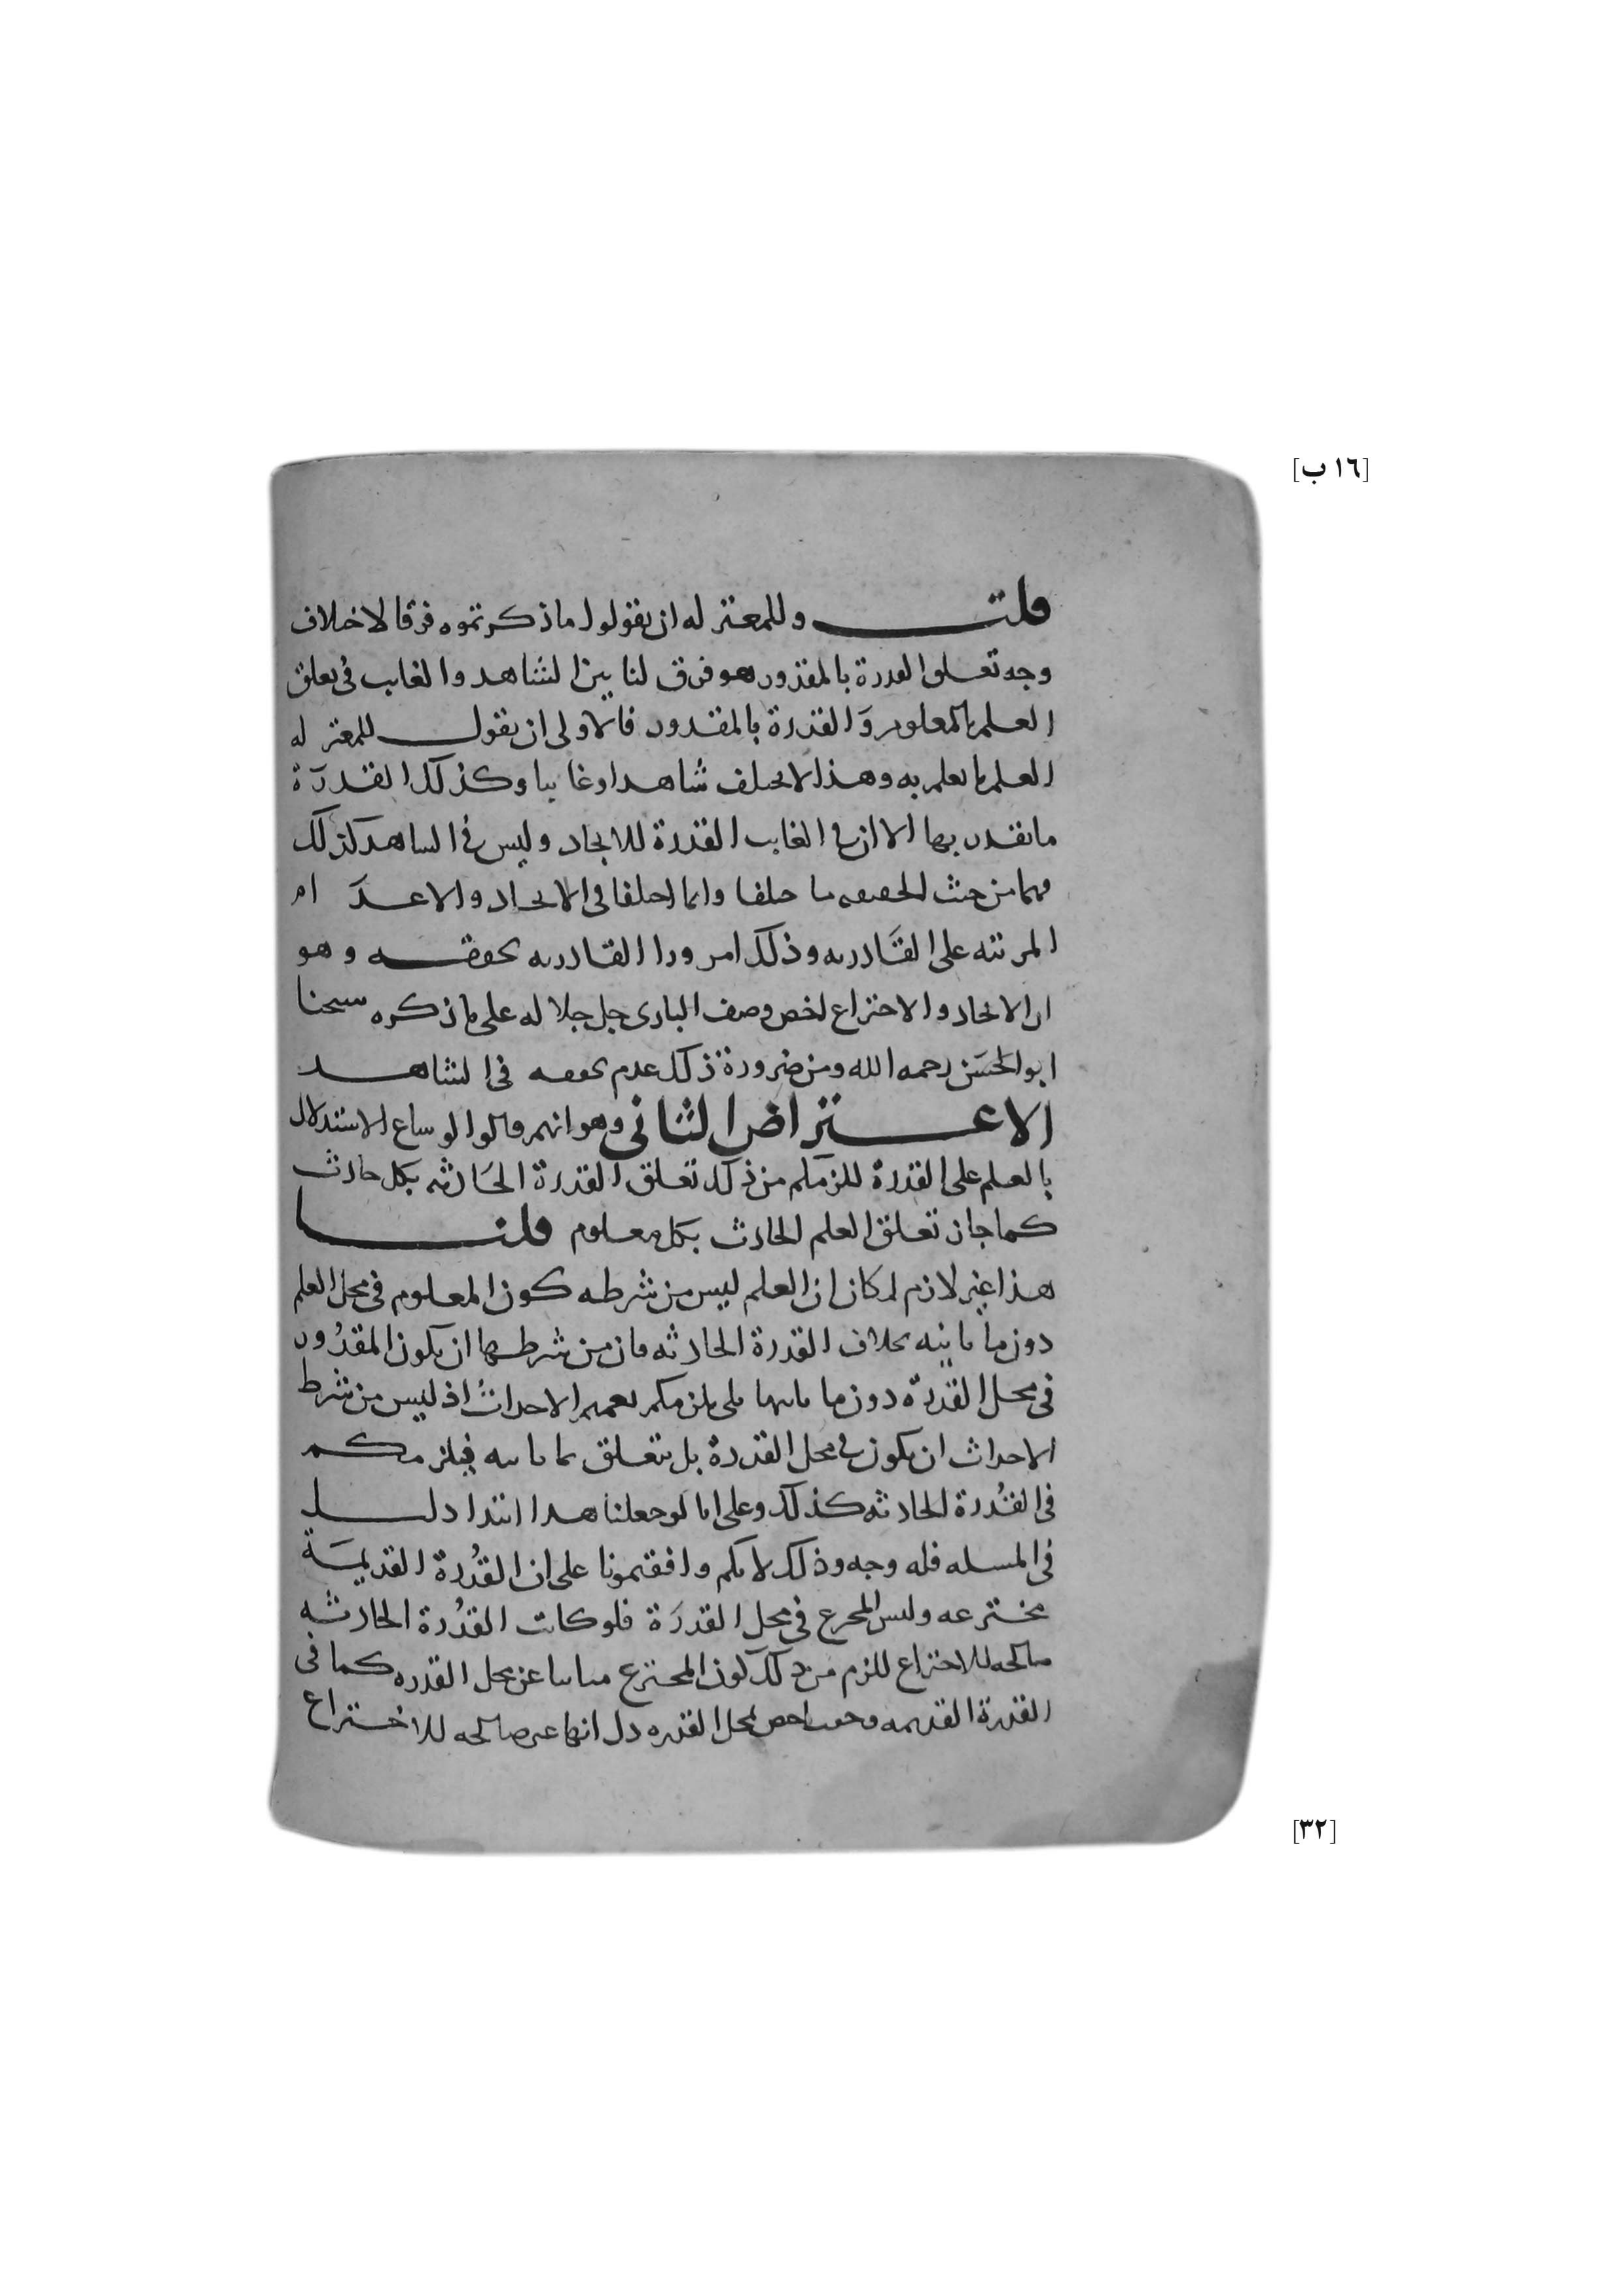 [١٦ ب]
قلت وللمعتزله ان يقولوا ما ذكرتموه فرقا لاختلاف
وجه تعلق القدرة بالمقدور هو فرق لنا بين الشاهد والغايب في تعلق
العلم بالمعلوم وَالقدرة بالمقدور فالاولى ان يقول للمعتزله
العلم ما يعلم به وهذا لا يختلف شاهدا وغايبا وكذلك القدرَة
ما يقدر بها الا ان في الغايب القدرة للايجاد وليس في الشاهد كذلك
فهما من حيث الحقيقه ما اختلفا وانما اختلفا في الايجاد والاعدَام
المرتبه على القَادريه وذلك امر ورا القادريه وهو
ان الايجاد والاختراع اخص وصف البارى جل جلاله على ما ذكره شيخنا
ابو الحسَن رحمه الله ومن ضرورة ذلك عدم تحققه في الشاهد
الاعتراض الثاني وهو انهم قالوا لو ساغ الاستدلال
بالعلم على القدرة للزمكم من ذلك تعلق القدرة الحَادثه بكل حادث
كما جاز تعلق العلم الحادث بكل معلوم قلنا
هذا غير لازم لمكان ان العلم ليس من شرطه كون المعلوم في محل العلم
دون ما باينه بخلاف القدرة الحادثه فان من شرطها ان يكون المقدُور
في محل القدرة دون ما باينها بلى يلزمكم تعميم الاحداث اذ ليس من شرط
الاحداث ان يكون في محل القدرة بل يتعلق بما باينه فيلزمكم
في القُدرة الحادثه كذلك وعلى انا لو جعلنا هذا ابتدا دليل
في المسله فله وجه وذلك لانكم وافقتمونا على ان القُدرة القديمَة
مخترعه وليس المخترع في محل القدرَة فلو كانت القدُرة الحادثه
صالحه للاختراع للزم من ذلك كون المخترع مباينا عن محل القدره كما في
القدرة القديمه وحيث اختص بمحل القدره دل انها غير صالحه للاختراع
[٣٢]